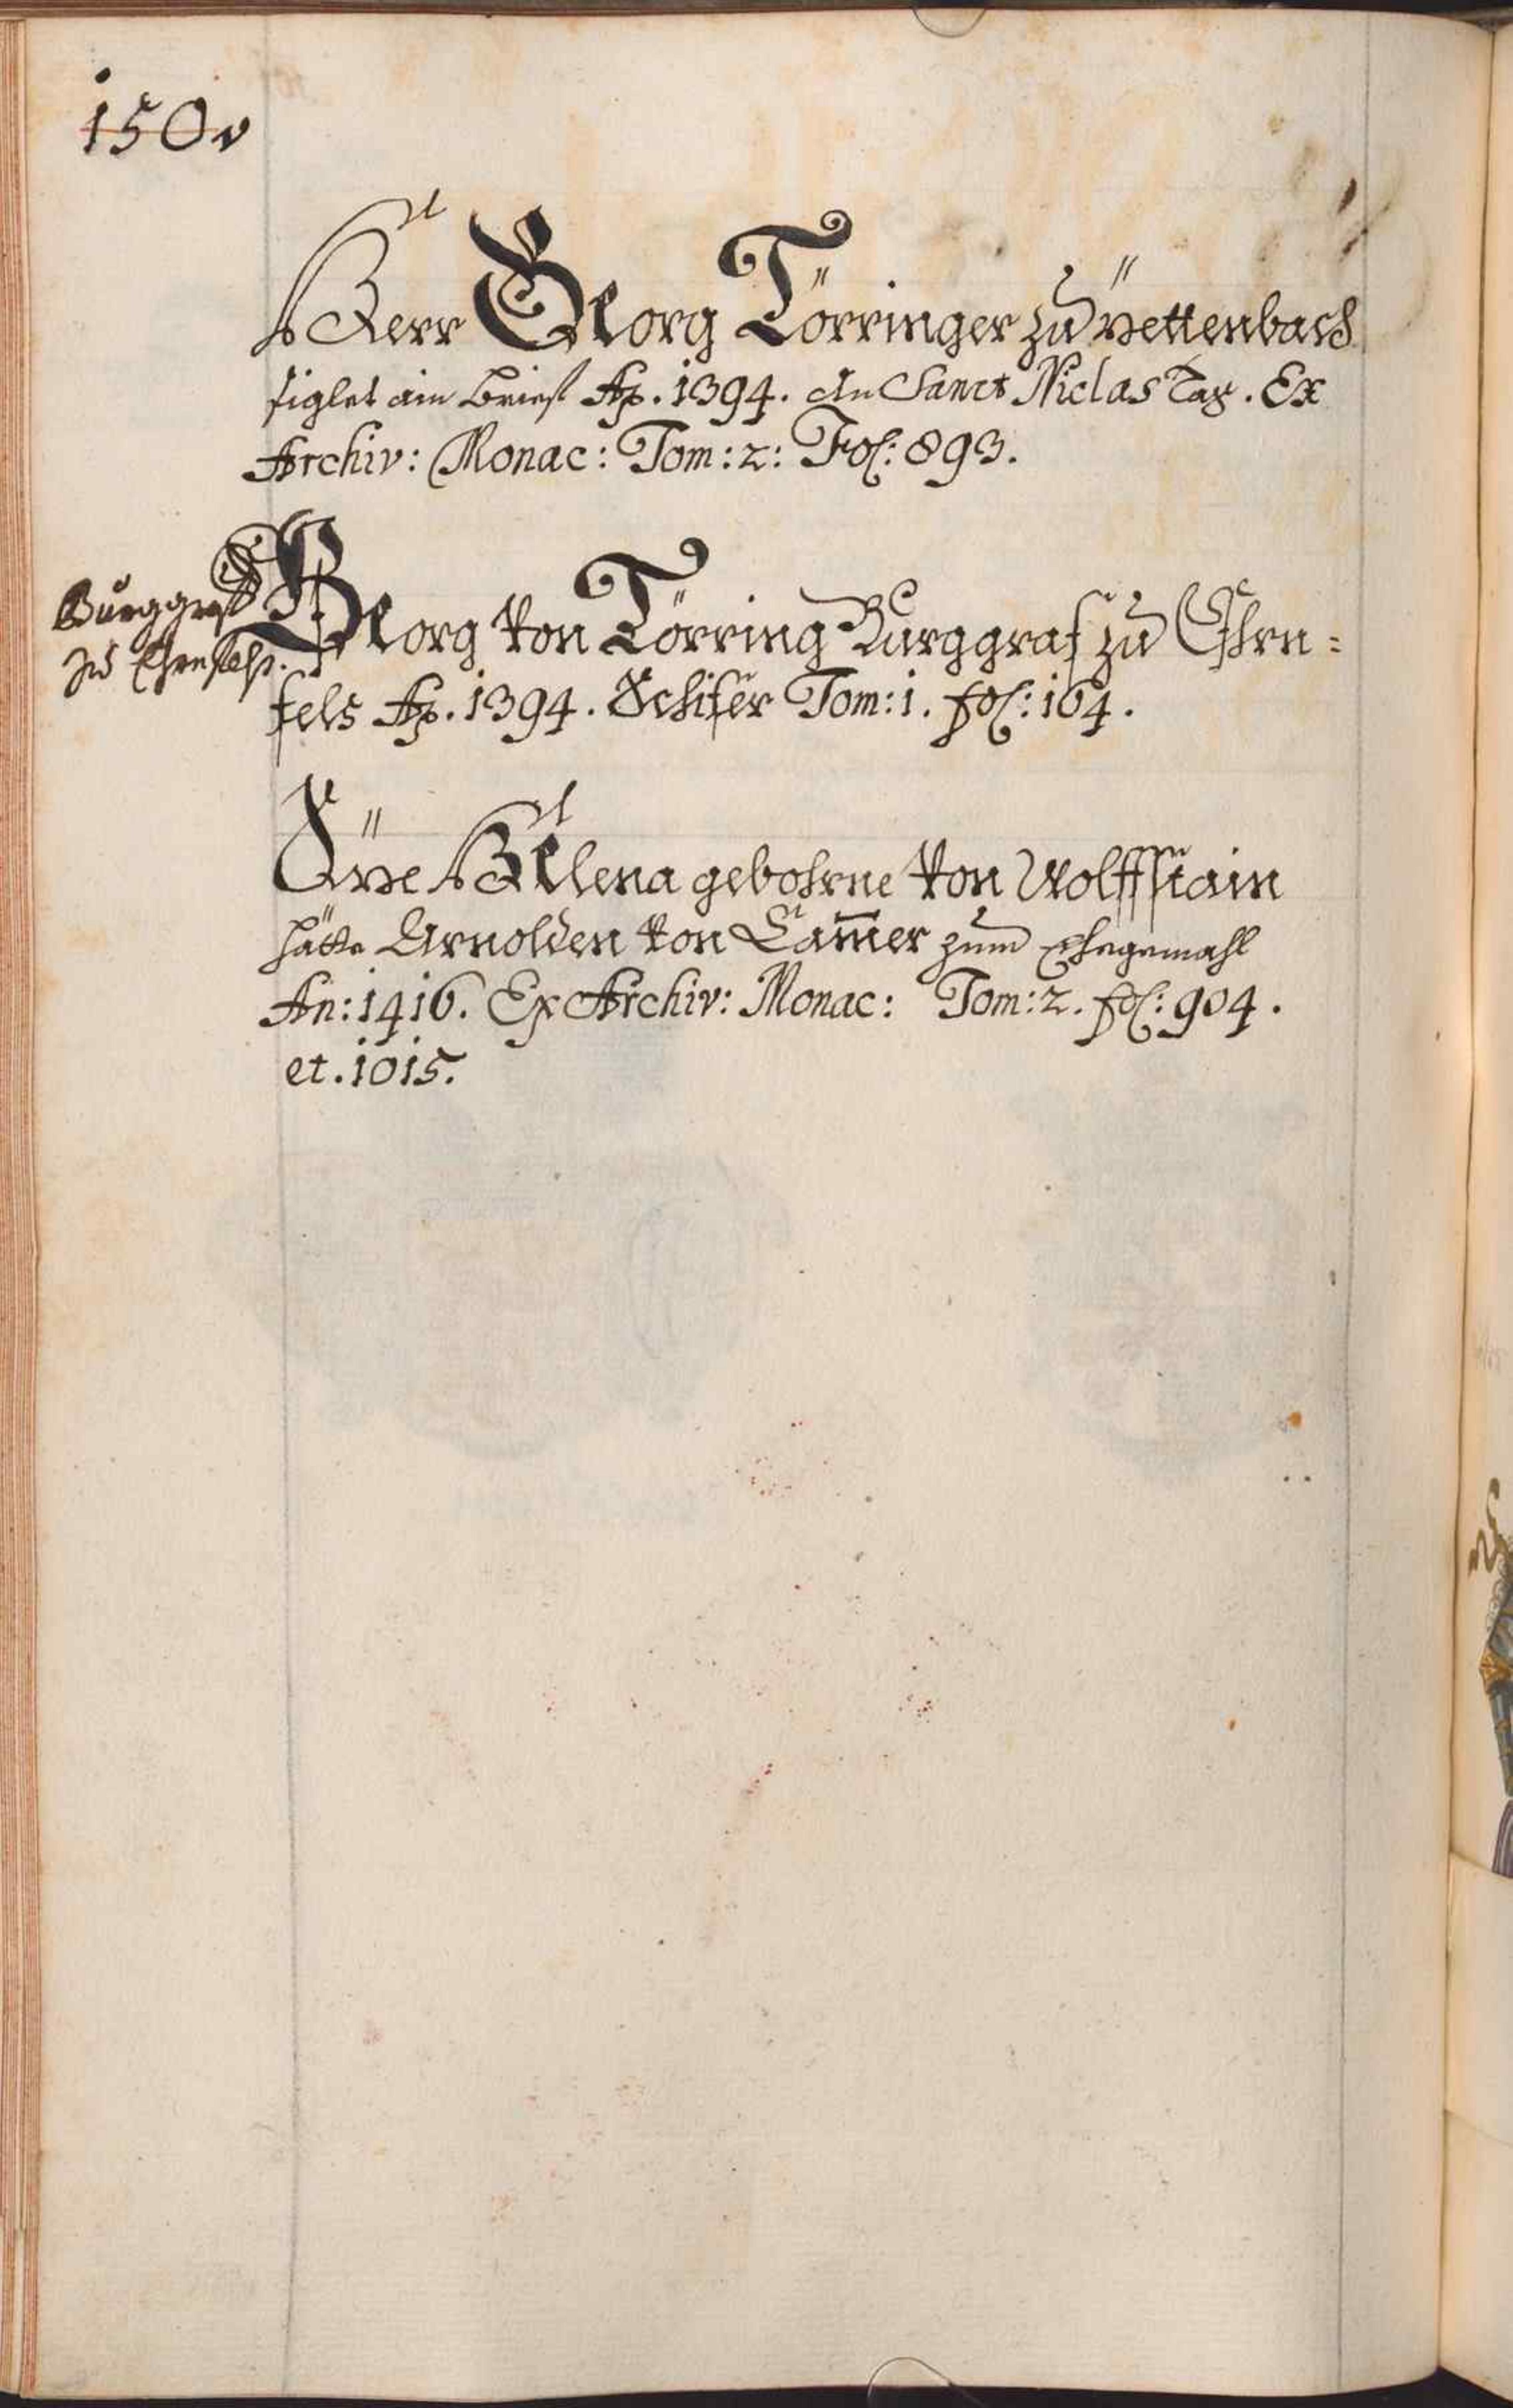 150v
HErr GEorg Törringer zu Pettenbach
siglet ain Brief Ao. 1394. An Sanct Niclas Tag. Ex
Archiv: Monac: Tom: 2: Fol: 893.
Burggraf
zu Ehrnfelß.
GEorg von Törring Burggraf zu Ehrn=
fels Ao. 1394. Schifer Tom: 1. fol: 164.
HElena gebohrne von Wolffstain
hätte Arnolden von Cam̄er zum Ehegemahl
An: 1416. Ex Archiv: Monac: Tom: 2. fol: 904.
et. 1015.